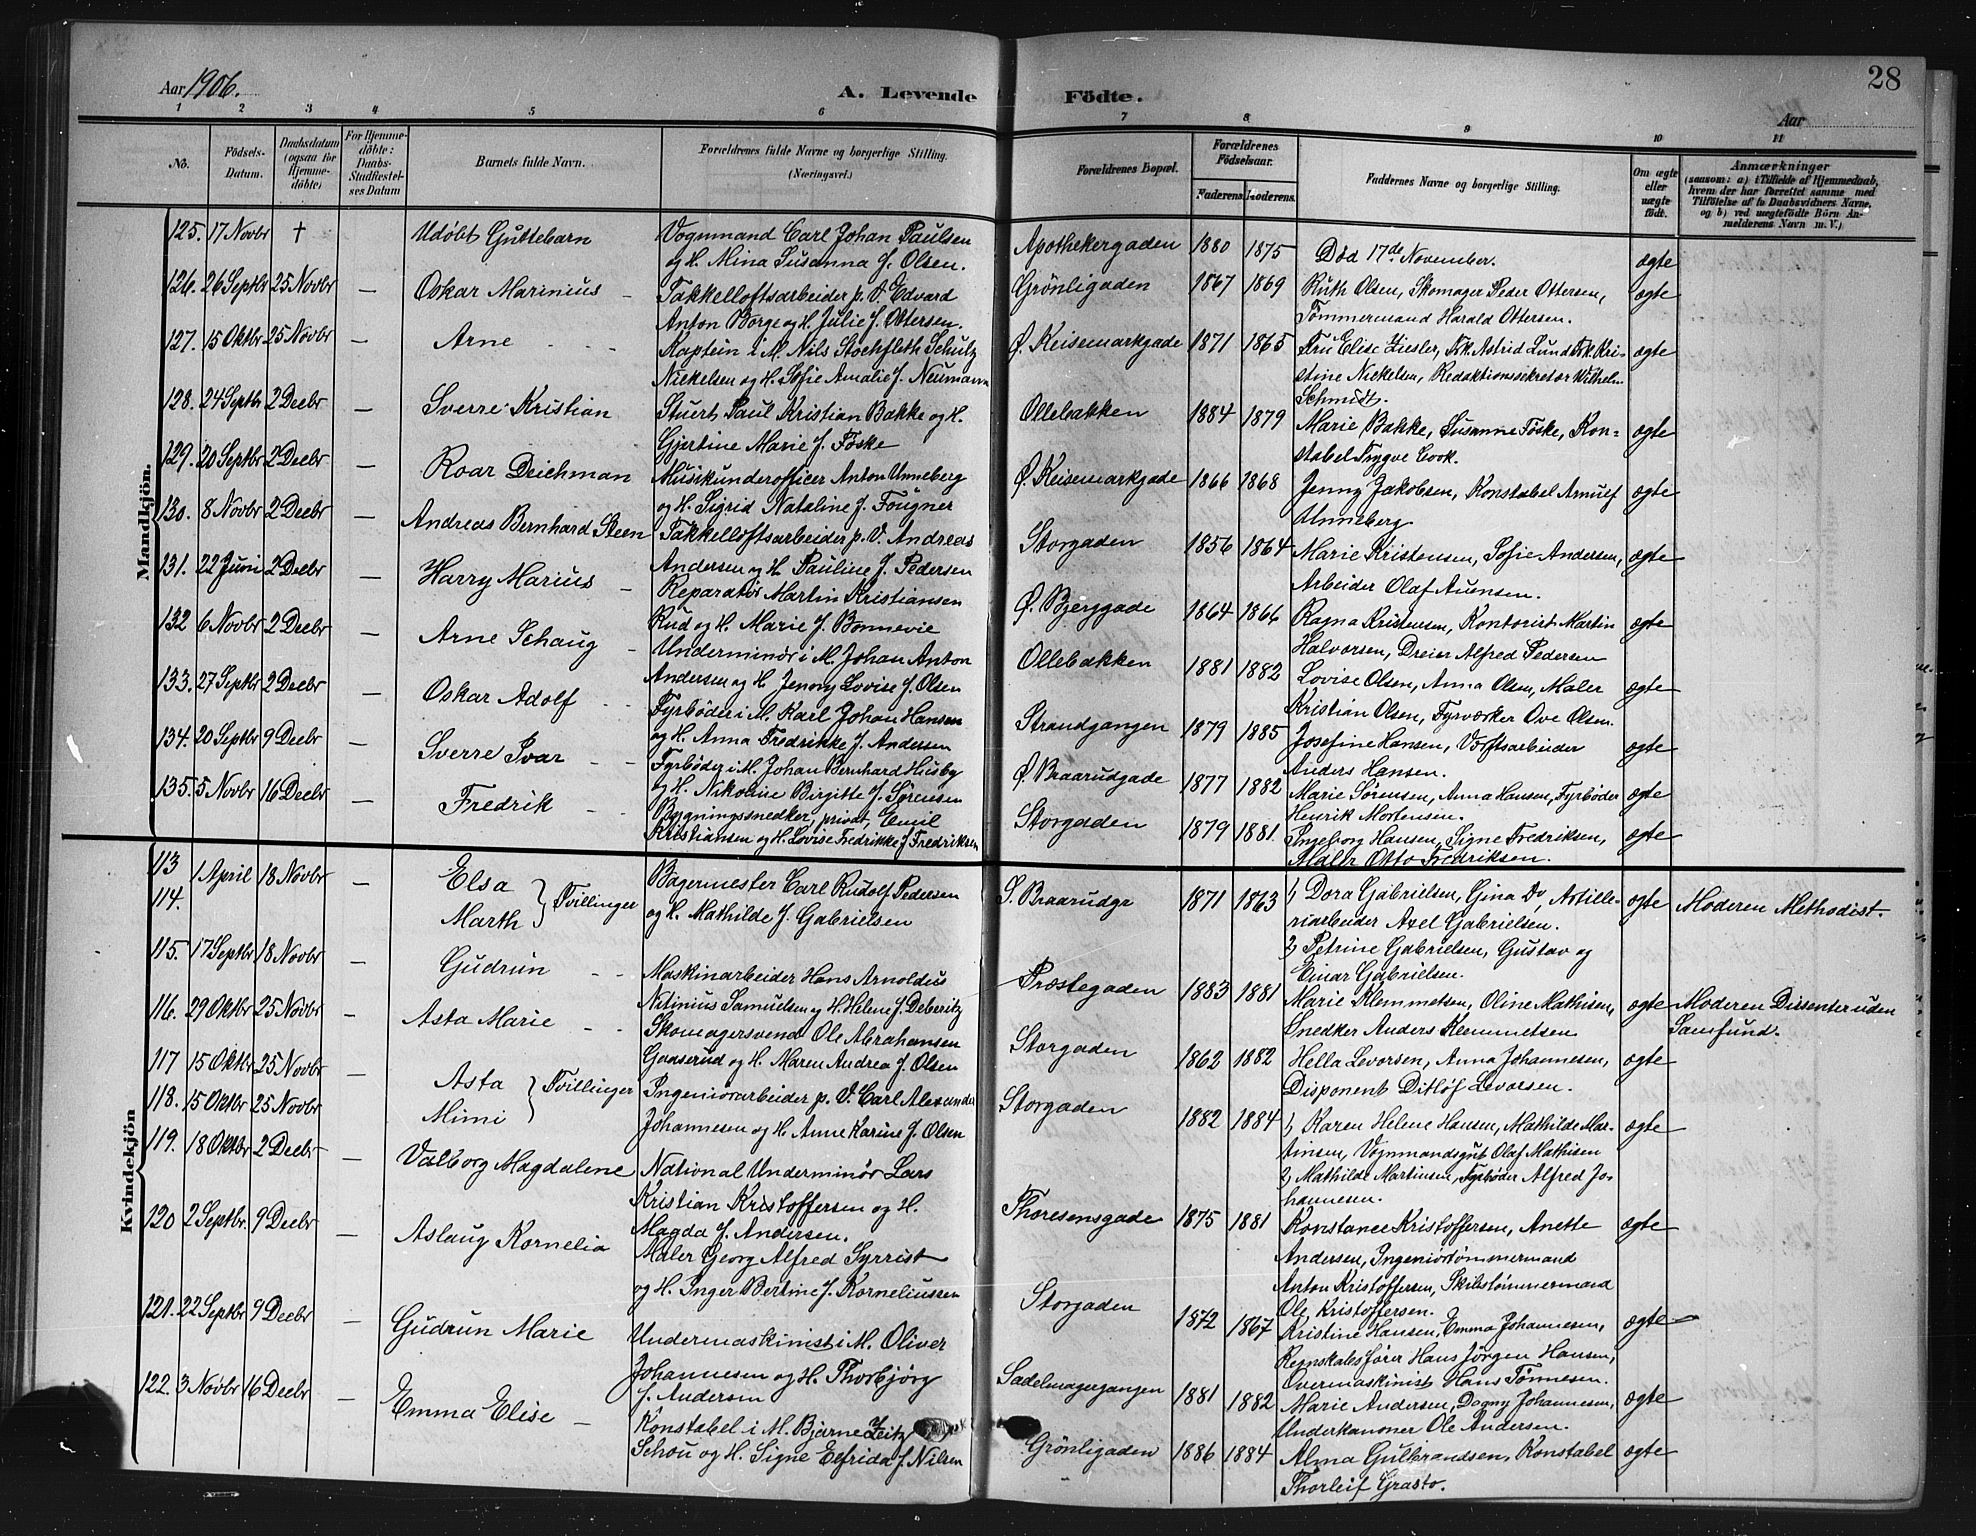 Aar 1906.
A. Levende Födte.
28
Aar
1 2 3 4 5 6 7 8 9 10 11
No.
Födsels-Datum.
Daabsdatum (ogsaa for Hjemme-döbte)
For Hjemme-döbte: Daabs-Stadfestel-ses Datum
Barnets fulde Navn.
Forældrenes fulde Navne og borgerlige Stilling. (Næringsvei.)
Forældrenes Bopæl.
Forældrenes Födselsaar.
Faderens Moderens.
Faddernes Navne og borgerlige Stilling.
Om ægte eller uægte födt.
Anmærkninger
(saasom: a) i Tilfælde af Hjemmedaab, hvem der har forrettet samme med Tilföielse af to Daabsvidners Navne, og b) ved uægtefödte Börn An-melderens Navn m. V.)
Mandkjön.
125. 17 Novbr † Udöbt Guttebarn Vognmand Carl Johan Paulsen og H. Mina Susanna f. Olsen. Apothekergaden 1880 1875 Död 17de November. ægte
126. 26 Septbr 25 Novbr — Oskar Marinius Takkelloftsarbeider p. V. Edvard Anton Borge og H. Julie f. Ottersen. Grönligaden 1867 1869 Ruth Olsen, Skomager Peder Ottersen, Tömmermand Harald Ottersen. ægte
127. 15 Oktbr 25 Novbr — Arne Kaptein i M. Nils Stochfleth Schultz Nickelsen og H. Sofie Amalie f. Neumann Ö. Keisemarkgade 1871 1865 Fru Elise Ziesler, Frk. Astrid Lund Frk. Kri-stine Nickelsen, Redaktionssekretær Wilhelm Schmidt. ægte
128. 24 Septbr 2 Decbr — Sverre Kristian Stuert Paul Kristian Bakke og H. Gjertine Marie f. Föske Ollebakken 1884 1879 Marie Bakke, Susanne Föske, Kon-stabel Trygve Cook. ægte
129. 20 Septbr 2 Decbr — Roar Deichman Musikunderofficer Anton Unneberg og H. Sigrid Nataline f. Fougner Ö. Keisemarkgade 1866 1868 Jenny Jakobsen, Konstabel Arnulf Unneberg ægte
130. 8 Novbr 2 Decbr — Andreas Bernhard Steen Takkelloftsarbeider p. V. Andreas Andersen og H. Pauline f. Pedersen Storgaden 1856 1864 Marie Kristensen, Sofie Andersen, Arbeider Olaf Auensen. ægte
131. 22 Juni 2 Decbr — Harry Marius Reparatör Martin Kristiansen Rud og H. Marie f. Bonnevie Ö. Bjerggade 1864 1866 Ragna Kristensen, Kontorist Martin Halvorsen, Dreier Alfred Pedersen ægte
132 6 Novbr 2 Decbr — Arne Schaug Underminör i M. Johan Anton Andersen og H. Jenny Lovise f. Olsen Ollebakken 1881 1882 Lovise Olsen, Anna Olsen, Maler Kristian Olsen, Fyrværker Ove Olsen. ægte
133. 27 Septbr 2 Decbr — Oskar Adolf Fyrböder i M. Karl Johan Hansen og H. Anna Fredrikke f. Andersen Strandgangen 1879 1885 Josefine Hansen, Værftsarbeider Anders Hansen. ægte
134. 20 Septbr 9 Decbr — Sverre Ivar Fyrböder i M. Johan Bernhard Husby og H. Nikoline Birgitte f. Sörensen Ö. Braarudgade 1877 1882 Marie Sörensen, Anna Hansen, Fyrböder Henrik Mortensen. ægte
135. 5 Novbr 16 Decbr — Fredrik Bygningssnedker, privat, Emil Kristiansen og H. Lovise Fredrikke f. Fredriksen Storgaden 1879 1881. Ingeborg Hansen, Signe Fredriksen, Maler Otto Fredriksen. ægte
Kvindekjön
113 114. 1 April 18 Novbr — Elsa Marth } Tvillinger Bagermester Carl Rudolf Pedersen og H. Mathilde f. Gabrielsen S. Braarudgr 1871 1863 1, Dora Gabrielsen, Gina Do, Artille-riarbeider Axel Gabrielsen. 2, Petrine Gabrielsen, Gustav og Einar Gabrielsen. ægte Moderen Methodist.
115. 17 Septbr 18 Novbr — Gudrun Maskinarbeider Hans Arnoldus Nitinius Samuelsen og H. Helene f. Deberitz Præstegaden 1883 1881 Marie Klemmetsen, Oline Mathisen, Snedker Anders Klemmetsen ægte Moderen Dissenter uden Samfund.
116. 29 Oktbr 25 Novbr — Asta Marie Skomagersvend Ole Abrahansen Gaaserud og H. Maren Andrea f. Olsen Storgaden 1862 1882 Hella Levorsen, Anna Johannesen, Disponent Ditlöf Levorsen. ægte
117 15 Oktbr 25 Novbr — Asta
118. 15 Oktbr 25 Novbr Mimi } Tvillinger Ingeniörarbeider p. V. Carl Alexander Johannesen og H. Anne Karine f. Olsen Storgaden 1882 1884 1, Karen Helene Hansen, Mathilde Mar-tinsen, Vognmandsgut Olaf Mathisen 2, Mathilde Martinsen, Fyrböder Alfred Jo-hannesen. ægte
119. 18 Oktbr 2 Decbr — Valborg Magdalene National Underminör Lars Kristian Kristoffersen og H. Magda f. Andersen. Thoresensgade 1875 1881 Konstance Kristoffersen, Anette Andersen, Ingeniörtömmermand Anton Kristoffersen, Skibstömmermand Ole Kristoffersen. ægte
120 2 Septbr. 9 Decbr — Aslaug Kornelia Maler Georg Alfred Syrrist og H. Inger Bertine f. Korneliussen Storgaden 1872 1867 Kristine Hansen, Emma Johannesen, Regnskabsförer Hans Jörgen Hansen, Overmaskinist Hans Tönnesen. ægte
121. 22 Septbr 9 Decbr — Gudrun Marie Undermaskinist i M. Oliver Johannesen og H. Thorbjörg f. Andersen Sadelmagergangen 1881 1882 Marie Andersen, Dagny Johannesen, Underkanoner Ole Andersen. ægte
122. 3 Novbr 16 Decbr — Emma Elise Konstabel i M. Bjarne Zeitz Schou og H. Signe Elfrida f. Nilsen Grönligaden 1886 1884 Alma Gulbrandsen, Konstabel Thorleif Grasto. ægte